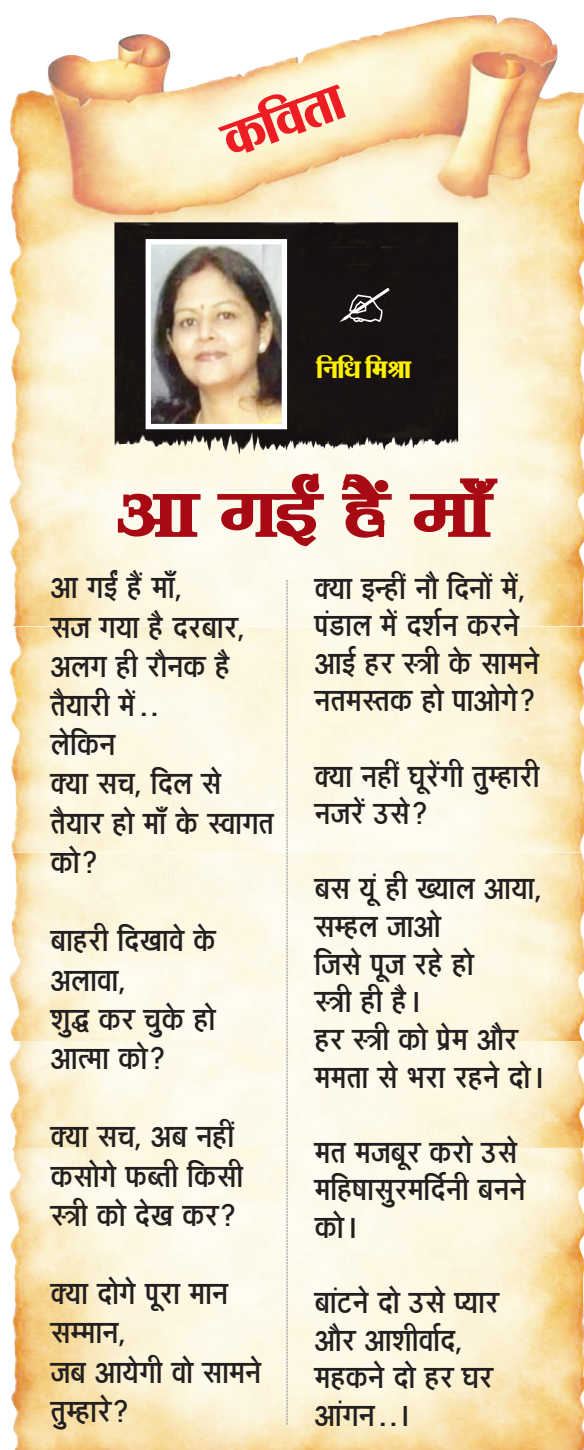 कविता
निधि मिश्रा
आ गईं हैं माँ
आ गईं हैं माँ,
सज गया है दरबार,
अलग ही रौनक है
तैयारी में..
लेकिन
क्या सच, दिल से
तैयार हो माँ के स्वागत
को?
बाहरी दिखावे के
अलावा,
शुद्ध कर चुके हो
आत्मा को?
क्या सच, अब नहीं
कसोगे फब्ती किसी
स्त्री को देख कर?
क्या दोगे पूरा मान
सम्मान,
जब आयेगी वो सामने
तुम्हारे?
क्या इन्हीं नौ दिनों में,
पंडाल में दर्शन करने
आई हर स्त्री के सामने
नतमस्तक हो पाओगे?
क्या नहीं घूरेंगी तुम्हारी
नजरें उसे?
बस यूं ही ख्याल आया,
सम्हल जाओ
जिसे पूज रहे हो
स्त्री ही है।
हर स्त्री को प्रेम और
ममता से भरा रहने दो।
मत मजबूर करो उसे
महिषासुरमर्दिनी बनने
को।
बांटने दो उसे प्यार
और आशीर्वाद,
महकने दो हर घर
आंगन..।